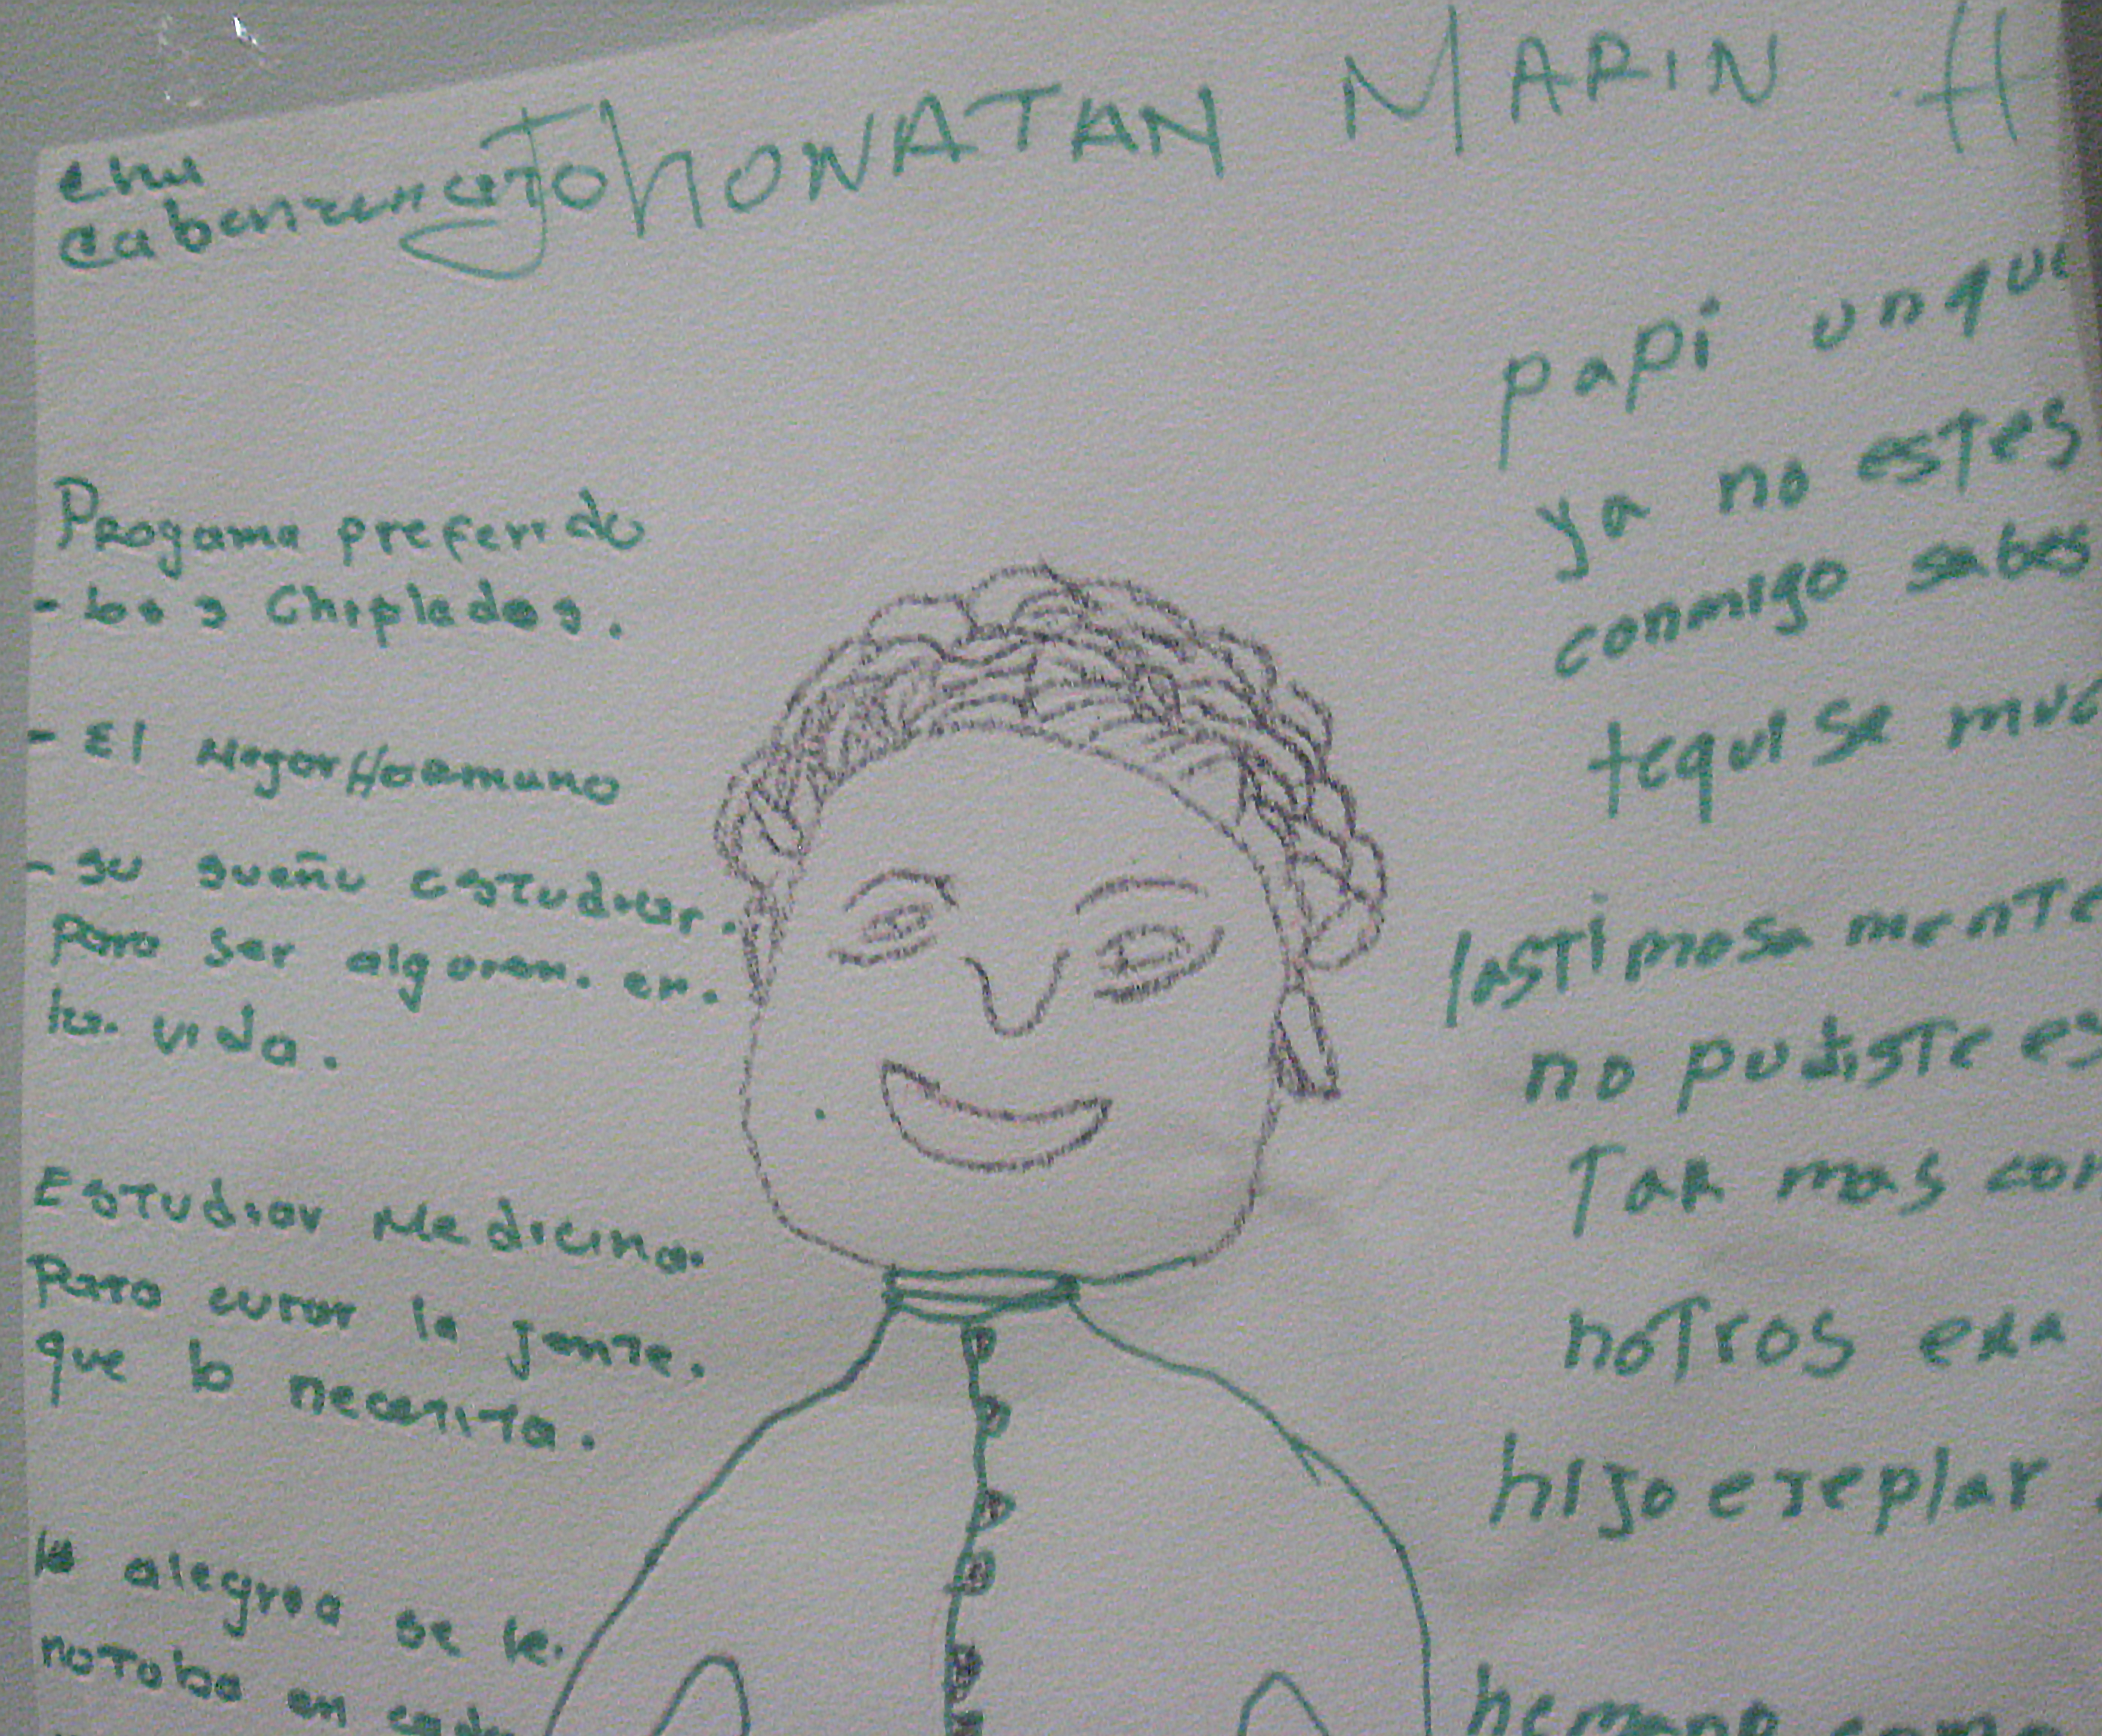 JhONATAN MARIN H
Progama preferido
- los 3 Chiplados.
- El Megor Hoermano
- su sueño estudiar.
para ser alguien. en.
la. vida.
Estudiar Medicina.
Para curar la jente.
que lo necesita.
la alegrea se le.
notaba en cada
papi unque
ya no estes
conmigo sabes
tequise muc
lastimosa mente
no pudiste es
Tar mas con
notros era
hijo ejeplar
hemano como